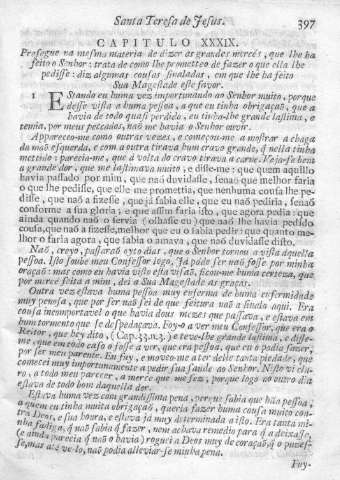 Santa Teresa de Jesus. 397
CAPITULO XXXIX.
Prosegue na mesma materia de dizer as grandes mercès, que lhe ha
feito o Senhor: trata de como lhe prometteo de fazer o que ella lhe
pedisse: diz algumas cousas sinaladas, em que lhe ha feito
Sua Magestade este favor.
1 EStando eu huma vez importunando ao Senhor muito, porque
desse vista a huma pessoa, a que eu tinha obrigaçaõ, que a
havia de todo quasi perdido, eu tinha-lhe grande lastima, e
temia, por meus peccados, naõ me havia o Senhor ouvir.
Appareceo-me como outras vezes, e começou-me a mostrar a chaga
da maõ esquerda, e com a outra tirava hum cravo grande, q̃ nella tinha
mettido: parecia-me, que à volta do cravo tirava a carne. Veja-se bem
a grande dor, que me lastimava muito; e disse-me: que quem aquillo
havia passado por mim, que naõ duvidasse, senaõ que melhor faria
o que lhe pedisse, que elle me promettia, que nenhuma cousa lhe pe-
disse, que naõ a fizesse, que já sabia elle, que eu naõ pediria, senaõ
conforme a sua gloria; e que assim faria isto, que agora pedia: que
ainda quando naõ o servia (olhasse eu) que naõ lhe havia pedido
cousa, que naõ a fizesse, melhor que eu o sabia pedir: que quanto me-
lhor o faria agora, que sabia o amava, que naõ duvidasse disto.
Naõ, creyo, passaraõ oyto dias, que o Senhor tornou a vista àquella
pessoa. Isto soube meu Confessor logo. Já póde ser naõ fosse por minha
oraçaõ: mas como eu havia visto esta visaõ, ficou-me huma certeza, que
por mercè feita a mim, dei a Sua Magestade as graças.
Outra vez estava huma pessoa muy enferma de huma enfermidade
muy penosa, que por ser naõ sei de que feitura naõ a sinalo aqui. Era
cousa incomportavel o que havia dous mezes que passava, e estava em
hum tormento que se despedaçava. Foy-o a ver meu Confessor, que era o
Reitor, que hey dito, (Cap. 33. n. 3.) e teve-lhe grande lastima, e disse-
me, que em todo caso o fosse a ver, que era pessoa, que eu o podia fazer,
por ser meu parente. Eu fuy, e moveo-me a ter delle tanta piedade, que
comecei muy importunamente a pedir sua saude ao Senhor. Nisto vi cla-
ro, a todo meu parecer, a mercè que me fez, porque logo ao outro dia
estava de todo bom daquella dor.
Estava huma vez com grandissima pena, porque sabia que hũa pessoa,
a quem eu tinha muita obrigaçaõ, queria fazer huma cousa muito con-
tra Deos, e sua honra, e estava já muy determinada a isto. Era tanta mi-
nha fadiga, q̃ naõ sabia q̃ fazer, nem achava remedio para a deixasse,
(e ainda parecia q̃ naõ o havia) roguei a Deos muy de coraçaõ, q̃ o puzes-
se, mas até ve-lo, naõ podia alleviar-se minha pena.
Fuy-